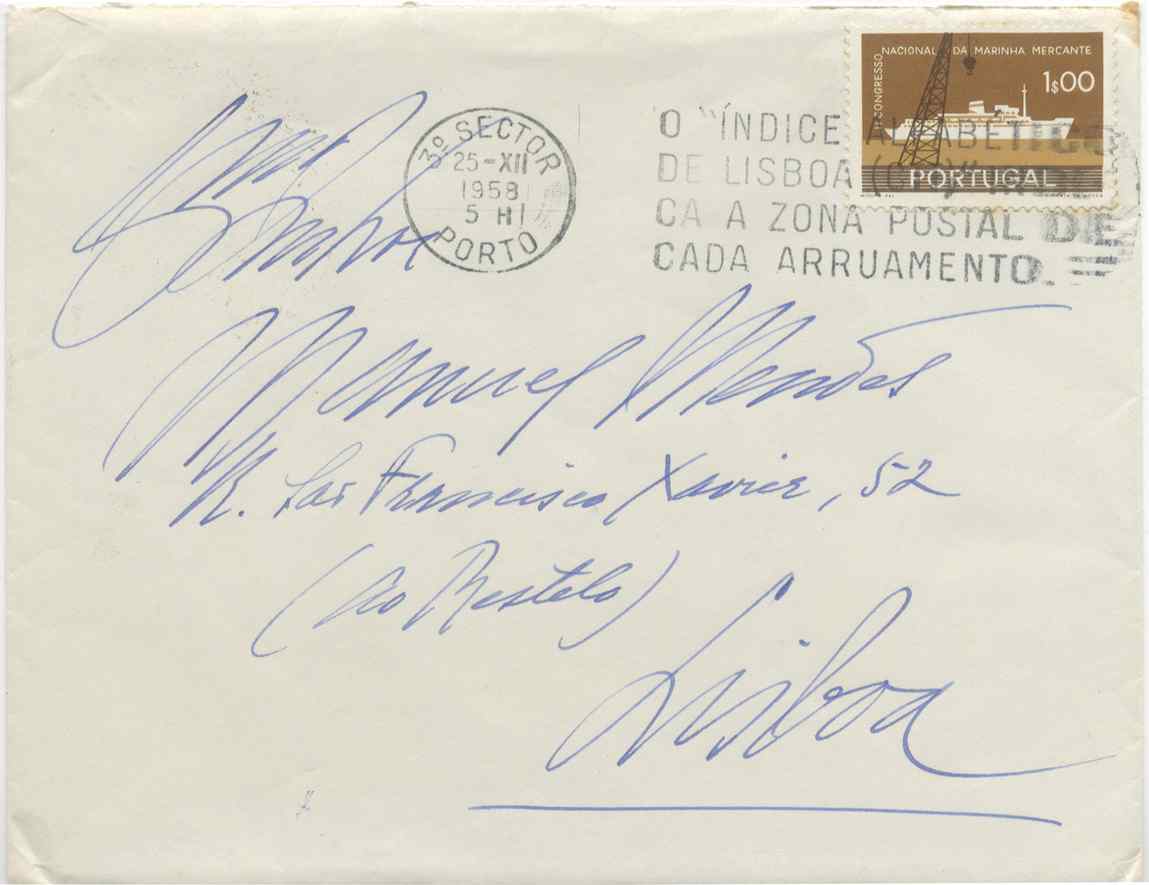 CONGRESSO NACIONAL DA MARINHA MERCANTE
1$00
PORTUGAL
3º SECTOR
25-XII
1958
5 H
PORTO
O "ÍNDICE ALFABÉTICO
DE LISBOA
CA A ZONA POSTAL DE
CADA ARRUAMENTO.
Senhor
Manuel Mendes
R. São Francisco Xavier, 52
(ao Restelo)
Lisboa